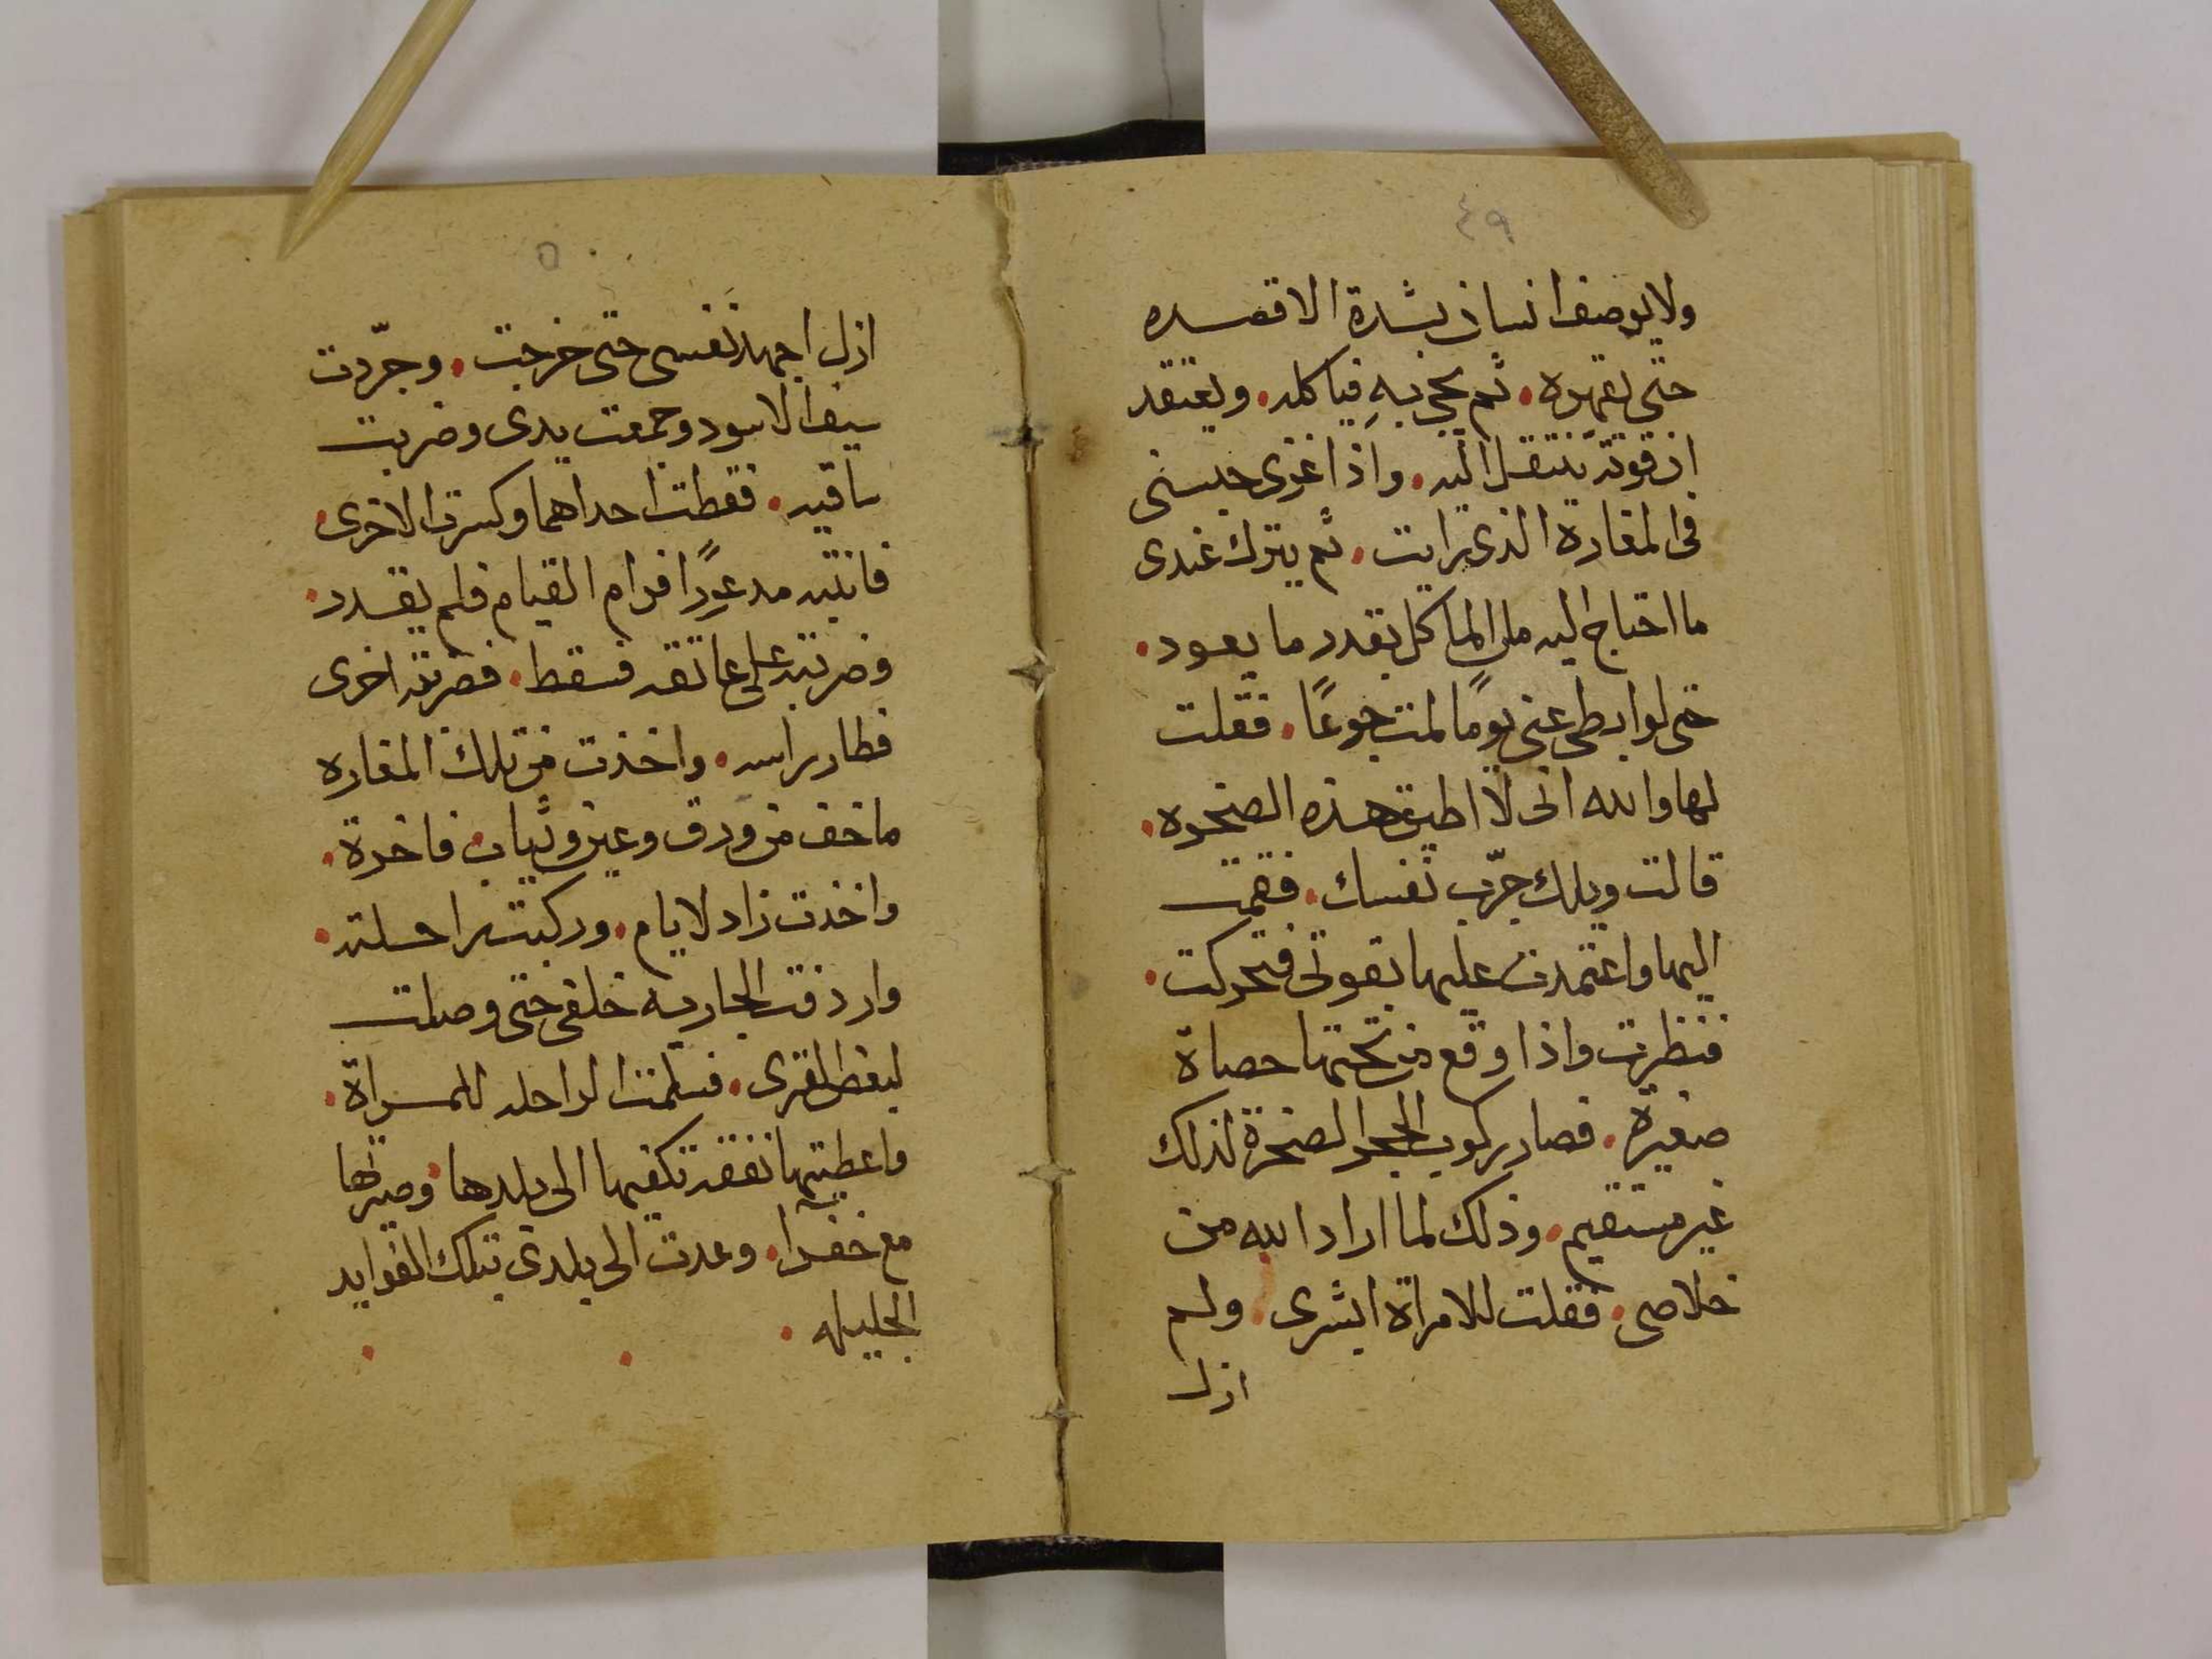 ٤٩
ولا يوصف انسان بشدة الا قصده
حتى يقهره. ثم يجي به فياكله. ويعتقد
ان قوته تنتقل اليه. واذا غزى حبسنى
فى المغارة الذى رايت. ثم يترك عندى
ما احتاج اليه من الماكل بقدر ما يعود.
حتى لو ابطى عنى يومًا لمت جوعًا. فقلت
لها والله انى لا اطيق هذه الصخره.
قالت ويلك جرّب نفسك. فقمت
اليها واعتمدت عليها بقوتى فتحركت.
فنظرت واذا وقع من تحتها حصاة
صغيرة. فصار ركوب الحجر الصخرة لذلك
غير مستقيم. وذلك لما اراد الله من
خلاصى. فقلت للامراة ابشرى. ولم
ازل
٥٠
ازل اجهد نفسى حتى خرجت. وجرّدت
سيف الاسود وجمعت يدى وضربت
ساقيه. فقطت احداهما وكسرت الاخرى.
فانتبه مدعورًا فرام القيام فلم يقدر.
وضربته على عاتقه فسقط. فضربته اخرى
فطار براسه. واخذت من تلك المغاره
ما خف من ورق وعين وثياب فاخرة.
واخذت زاد لايام. وركبت راحلته.
واردفت الجاريه خلفى حتى وصلت
لبعض القرى. فسلمت الراحله للمراة.
واعطيتها نفقه تكفيها الى بلدها. وصيرتها
مع خفرا. وعدت الى بلدى بتلك الفوايد
الجليله.